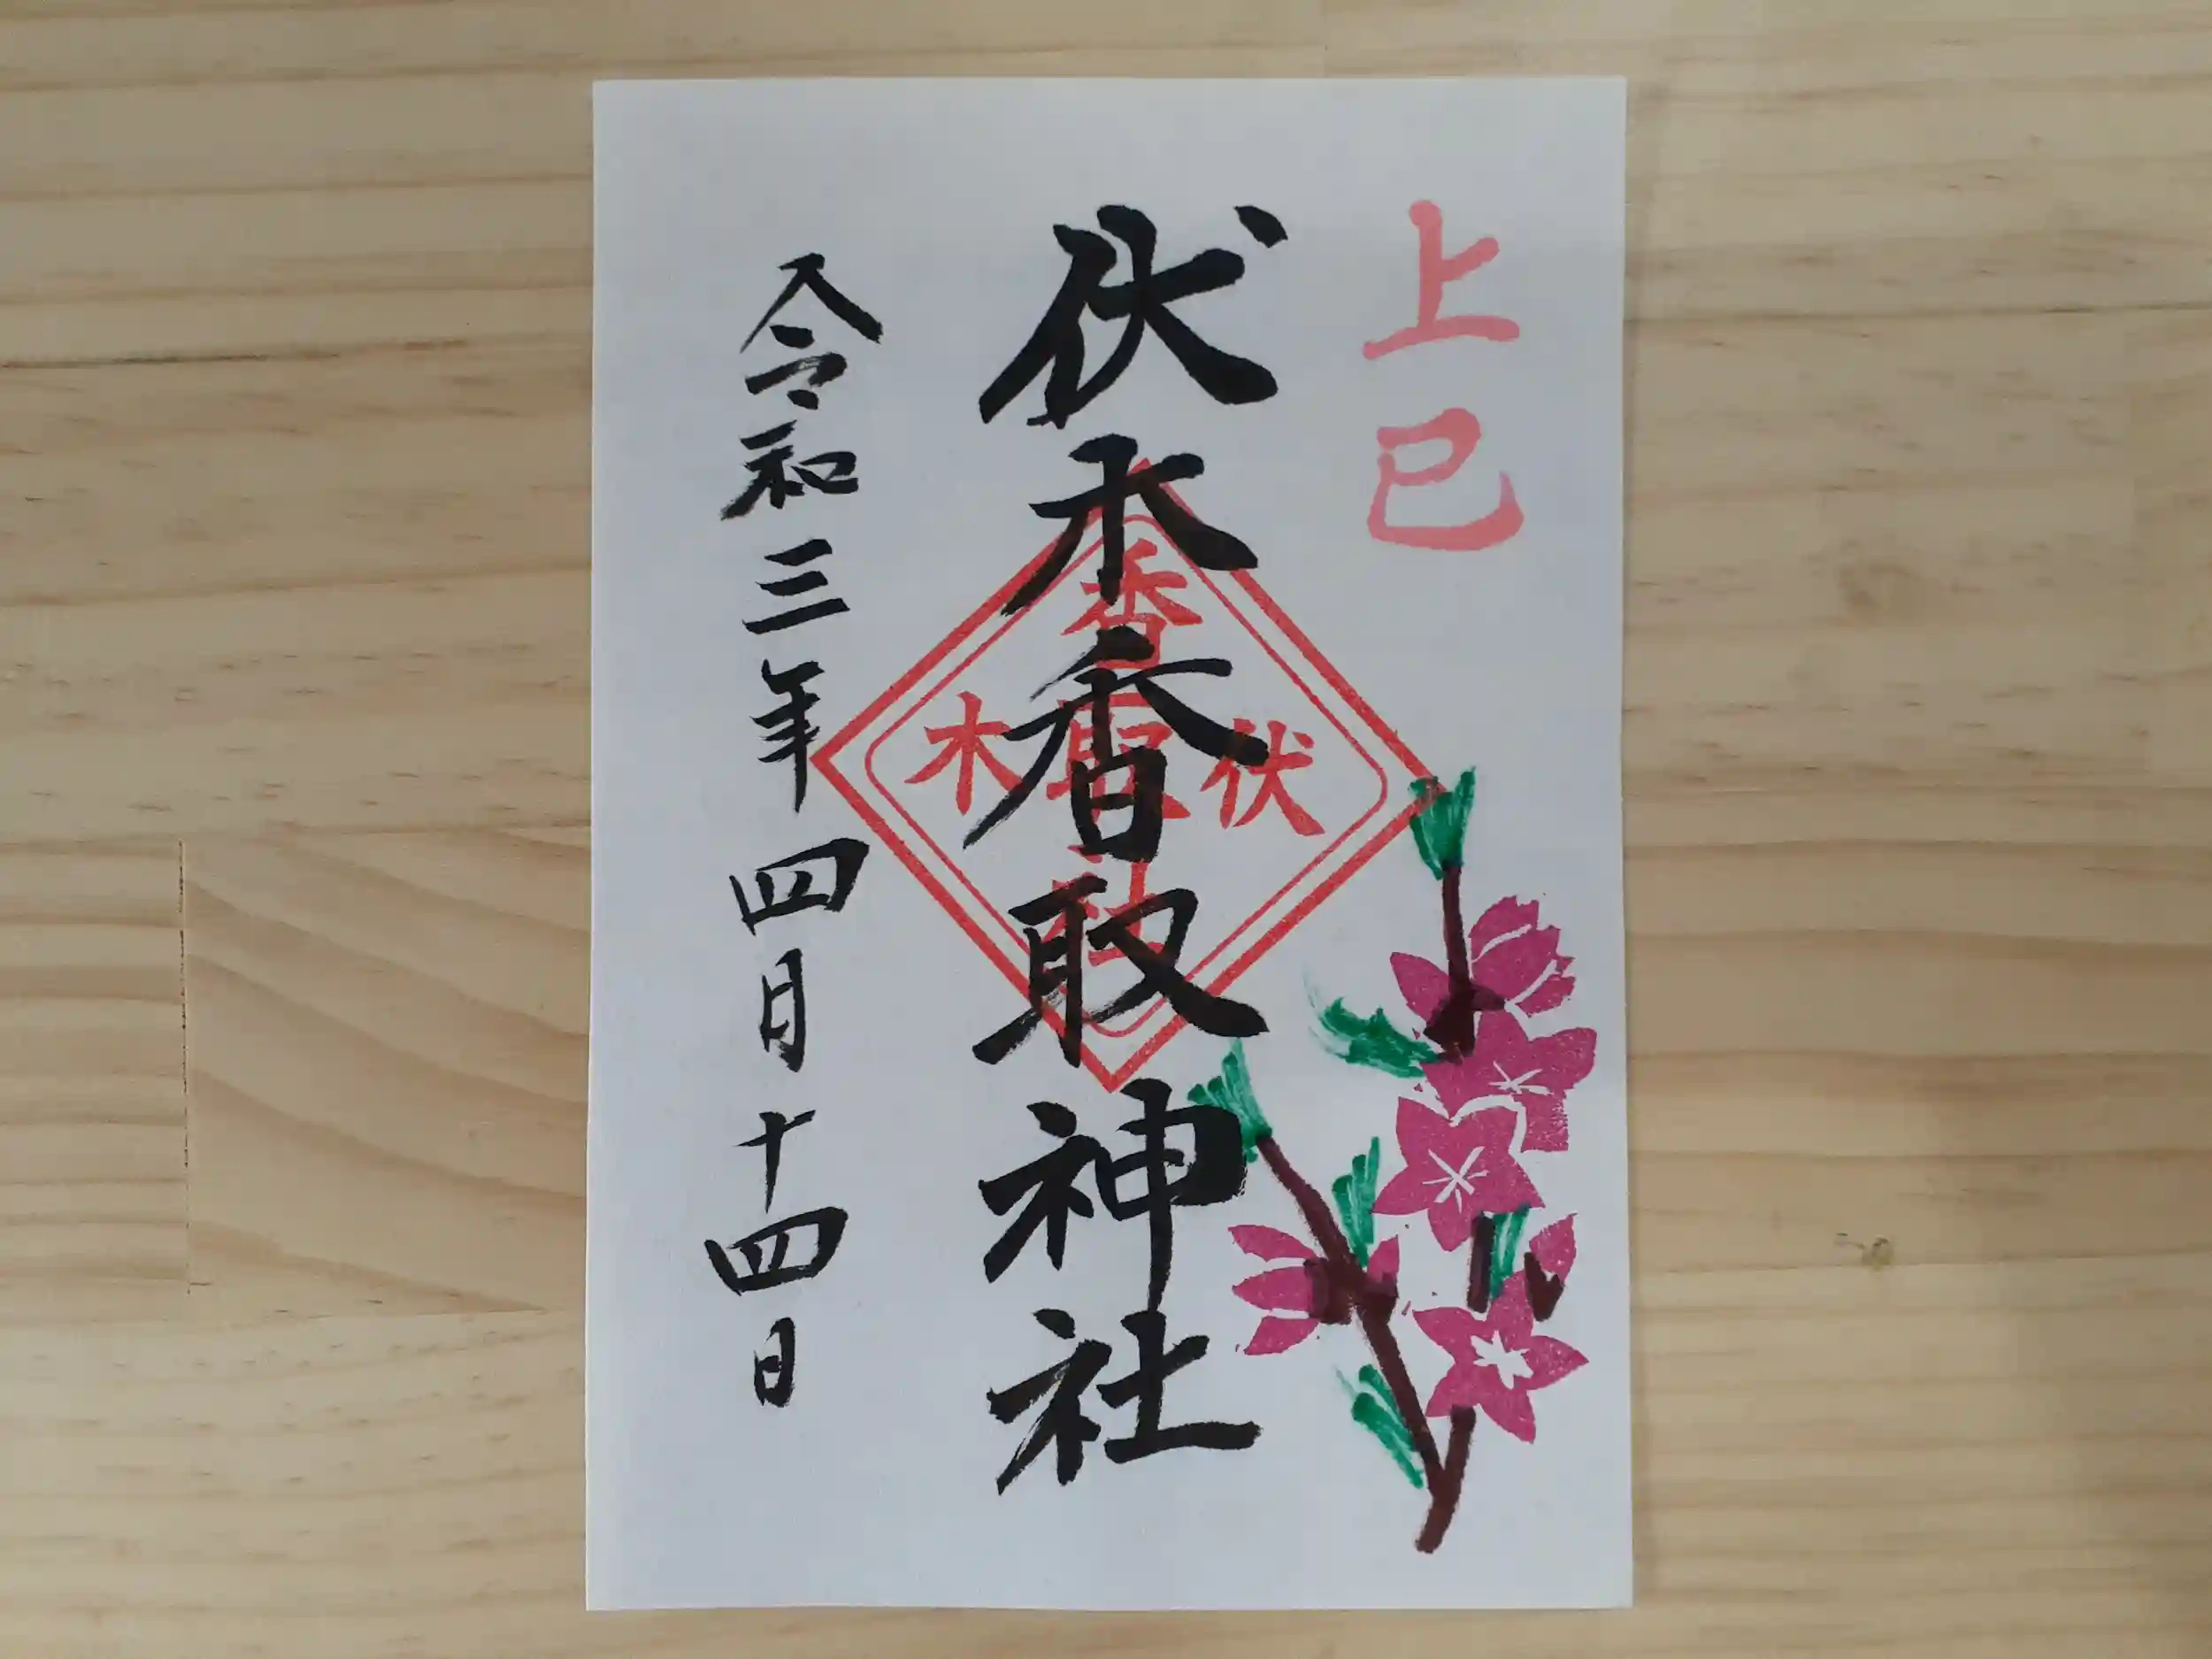 上巳
伏木香取神社
香取社
伏木
令和三年四月十四日